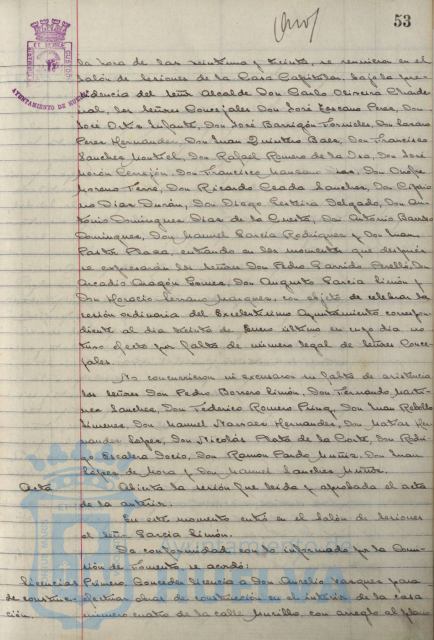 53
AYUNTAMIENTO DE HUELVA
la hora de las veintiuna y treinta, se reunieron en el
Salón de Sesiones de la Casa Capitular, bajo la pre-
sidencia del Señor Alcalde Don Carlos Oliveira Chardenal,
los señores Concejales Don José Toscano Perez, Don
José Ortiz Infante, Don José Barrigón Fornieles, Don
Perez Hernandez, Don Juan Quintero Baez, Don Francisco
Sanchez Montiel, Don Rafael Romero de la Osa, Don José
Morón Cerrejón, Don Francisco Manzano Don Onofre
Moreno Don Ricardo Ceada Sanchez, Don Cipria-
no Diaz Durán, Don Diego Delgado, Don An-
tonio Dominguez Diaz de la Don Antonio
Dominguez, Don Manuel Garcia Rodriguez y Don Juan
Pastor Plaza, entrando en los momentos que después
se expresarán los señores Don Pedro Garrido Perelló, Don
Arcadio Aragón Gomez, Don Augusto Garcia Limón y
Don Horacio Serrano Marquez, con objeto de celebrar la
sesión ordinaria del Excelentisimo Ayuntamiento correspon-
diente al dia treinta de Enero último en cuyo dia no
tuvo efecto por falta de número legal de señores Conce-
jales.
No concurrieron ni excusaron su falta de asistencia
los señores Don Pedro Borrero Limón, Don Fernando Marti-
nez Sanchez, Don Federico Romero Don Juan Rebollo
Jimenez, Don Manuel Narvaez Hernandez, Don Matías Her-
nandez López, Don Nicolás Plata de la Corte, Don Rodri-
go Escalera Don Ramón Pardo Muñiz, Don Juan
López de Mora y Don Manuel Sanchez Muñiz.
Acta Abierta la sesión fue leida y aprobada el acta
de la anterior.
En este momento entró en el Salón de Sesiones
el señor Garcia Limón.
De conformidad con lo informado por la Comi-
sión de Fomento, se acordó:
Licencias Primero. Conceder licencia a Don Aurelio Vazquez para
de construc- efectuar obras de construcción en el interior de la casa
ción. número cuatro de la calle Murillo, con arreglo al plano